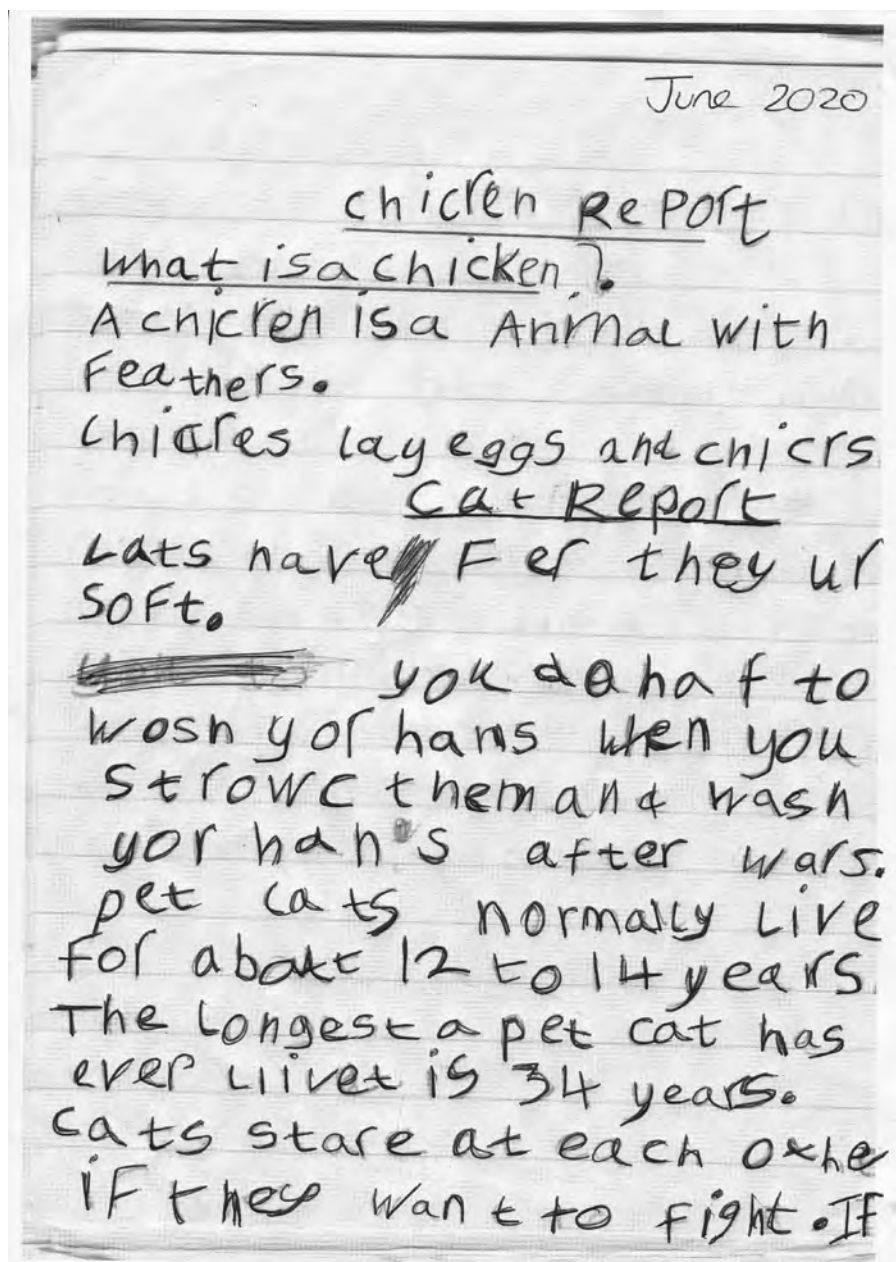 June 2020
chicren RePort
what is a chicken?
A chicren is a Animal with
Feathers.
chicres lay eggs and chicrs
Cat RePort
cats have Fer they ur
SoFt.
you do haf to
wosh yor hans when you
strowc them and wash
yor han's after wars.
pet cats normally Live
for aboutt 12 to 14 years
The Longest a pet cat has
ever Liivet is 34 years.
cats stare at each othe
iF they want to fight. IF